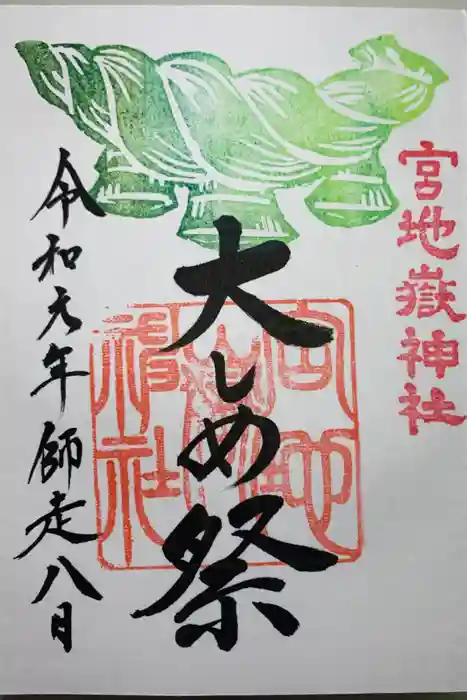 宮地嶽神社
大しめ祭
令和元年師走八日
宮地嶽神社